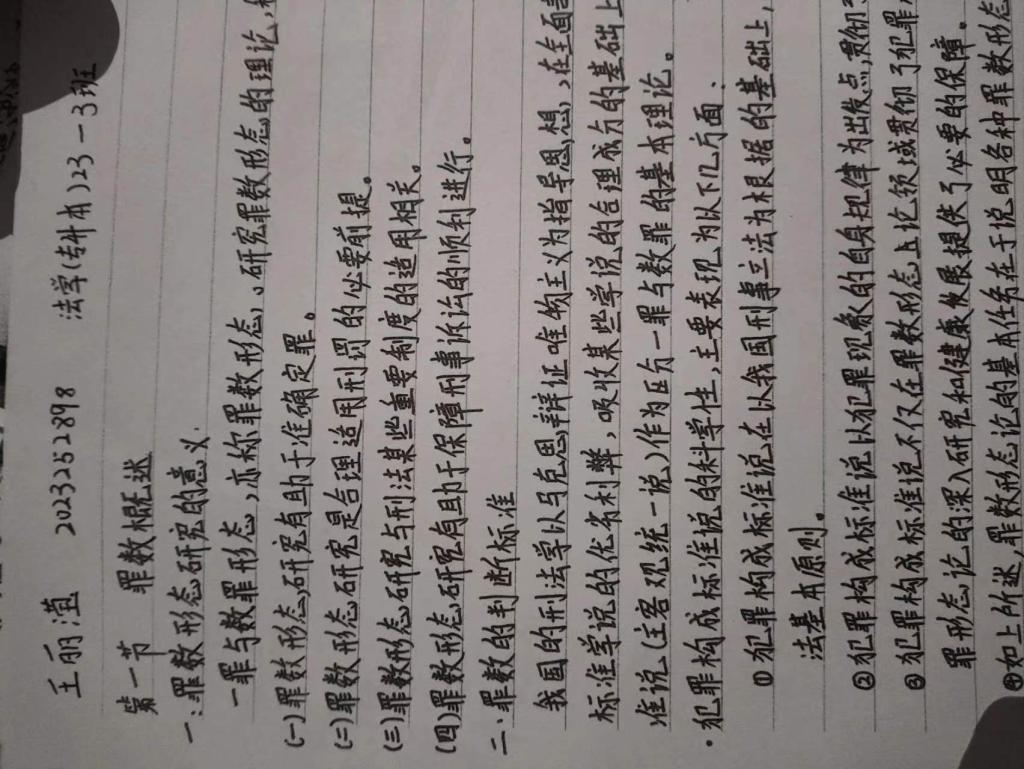 王丽滢 2023252898 法学(专升本)23-3班
第一节 罪数概述
一:罪数形态研究的意义.
一罪与数罪形态,亦称罪数形态,研究罪数形态的理论,
(一)罪数形态研究有助于准确定罪。
(二)罪数形态研究是合理适用刑罚的必要前提。
(三)罪数形态研究与刑法某些重要制度的适用相关。
(四)罪数形态研究有助于保障刑事诉讼的顺利进行。
二、罪数的判断标准
我国的刑法学以马克思辩证唯物主义为指导思想,在全面
标准学说的优劣利弊,吸收某些学说的合理成分的基础上
准说(主客观统一说)作为区分一罪与数罪的基本理论。
·犯罪构成标准说的科学性,主要表现为以下几方面:
①犯罪构成标准说在以我国刑事立法为根据的基础上,
法基本原则。
②犯罪构成标准说以犯罪现象的自身规律为出发点,贯彻
③犯罪构成标准说不仅在罪数形态上论领域贯彻了犯罪
罪形态论的深入研究和健康发展提供了必要的保障。
④如上所述,罪数形态论的基本任务在于说明各种罪数形态